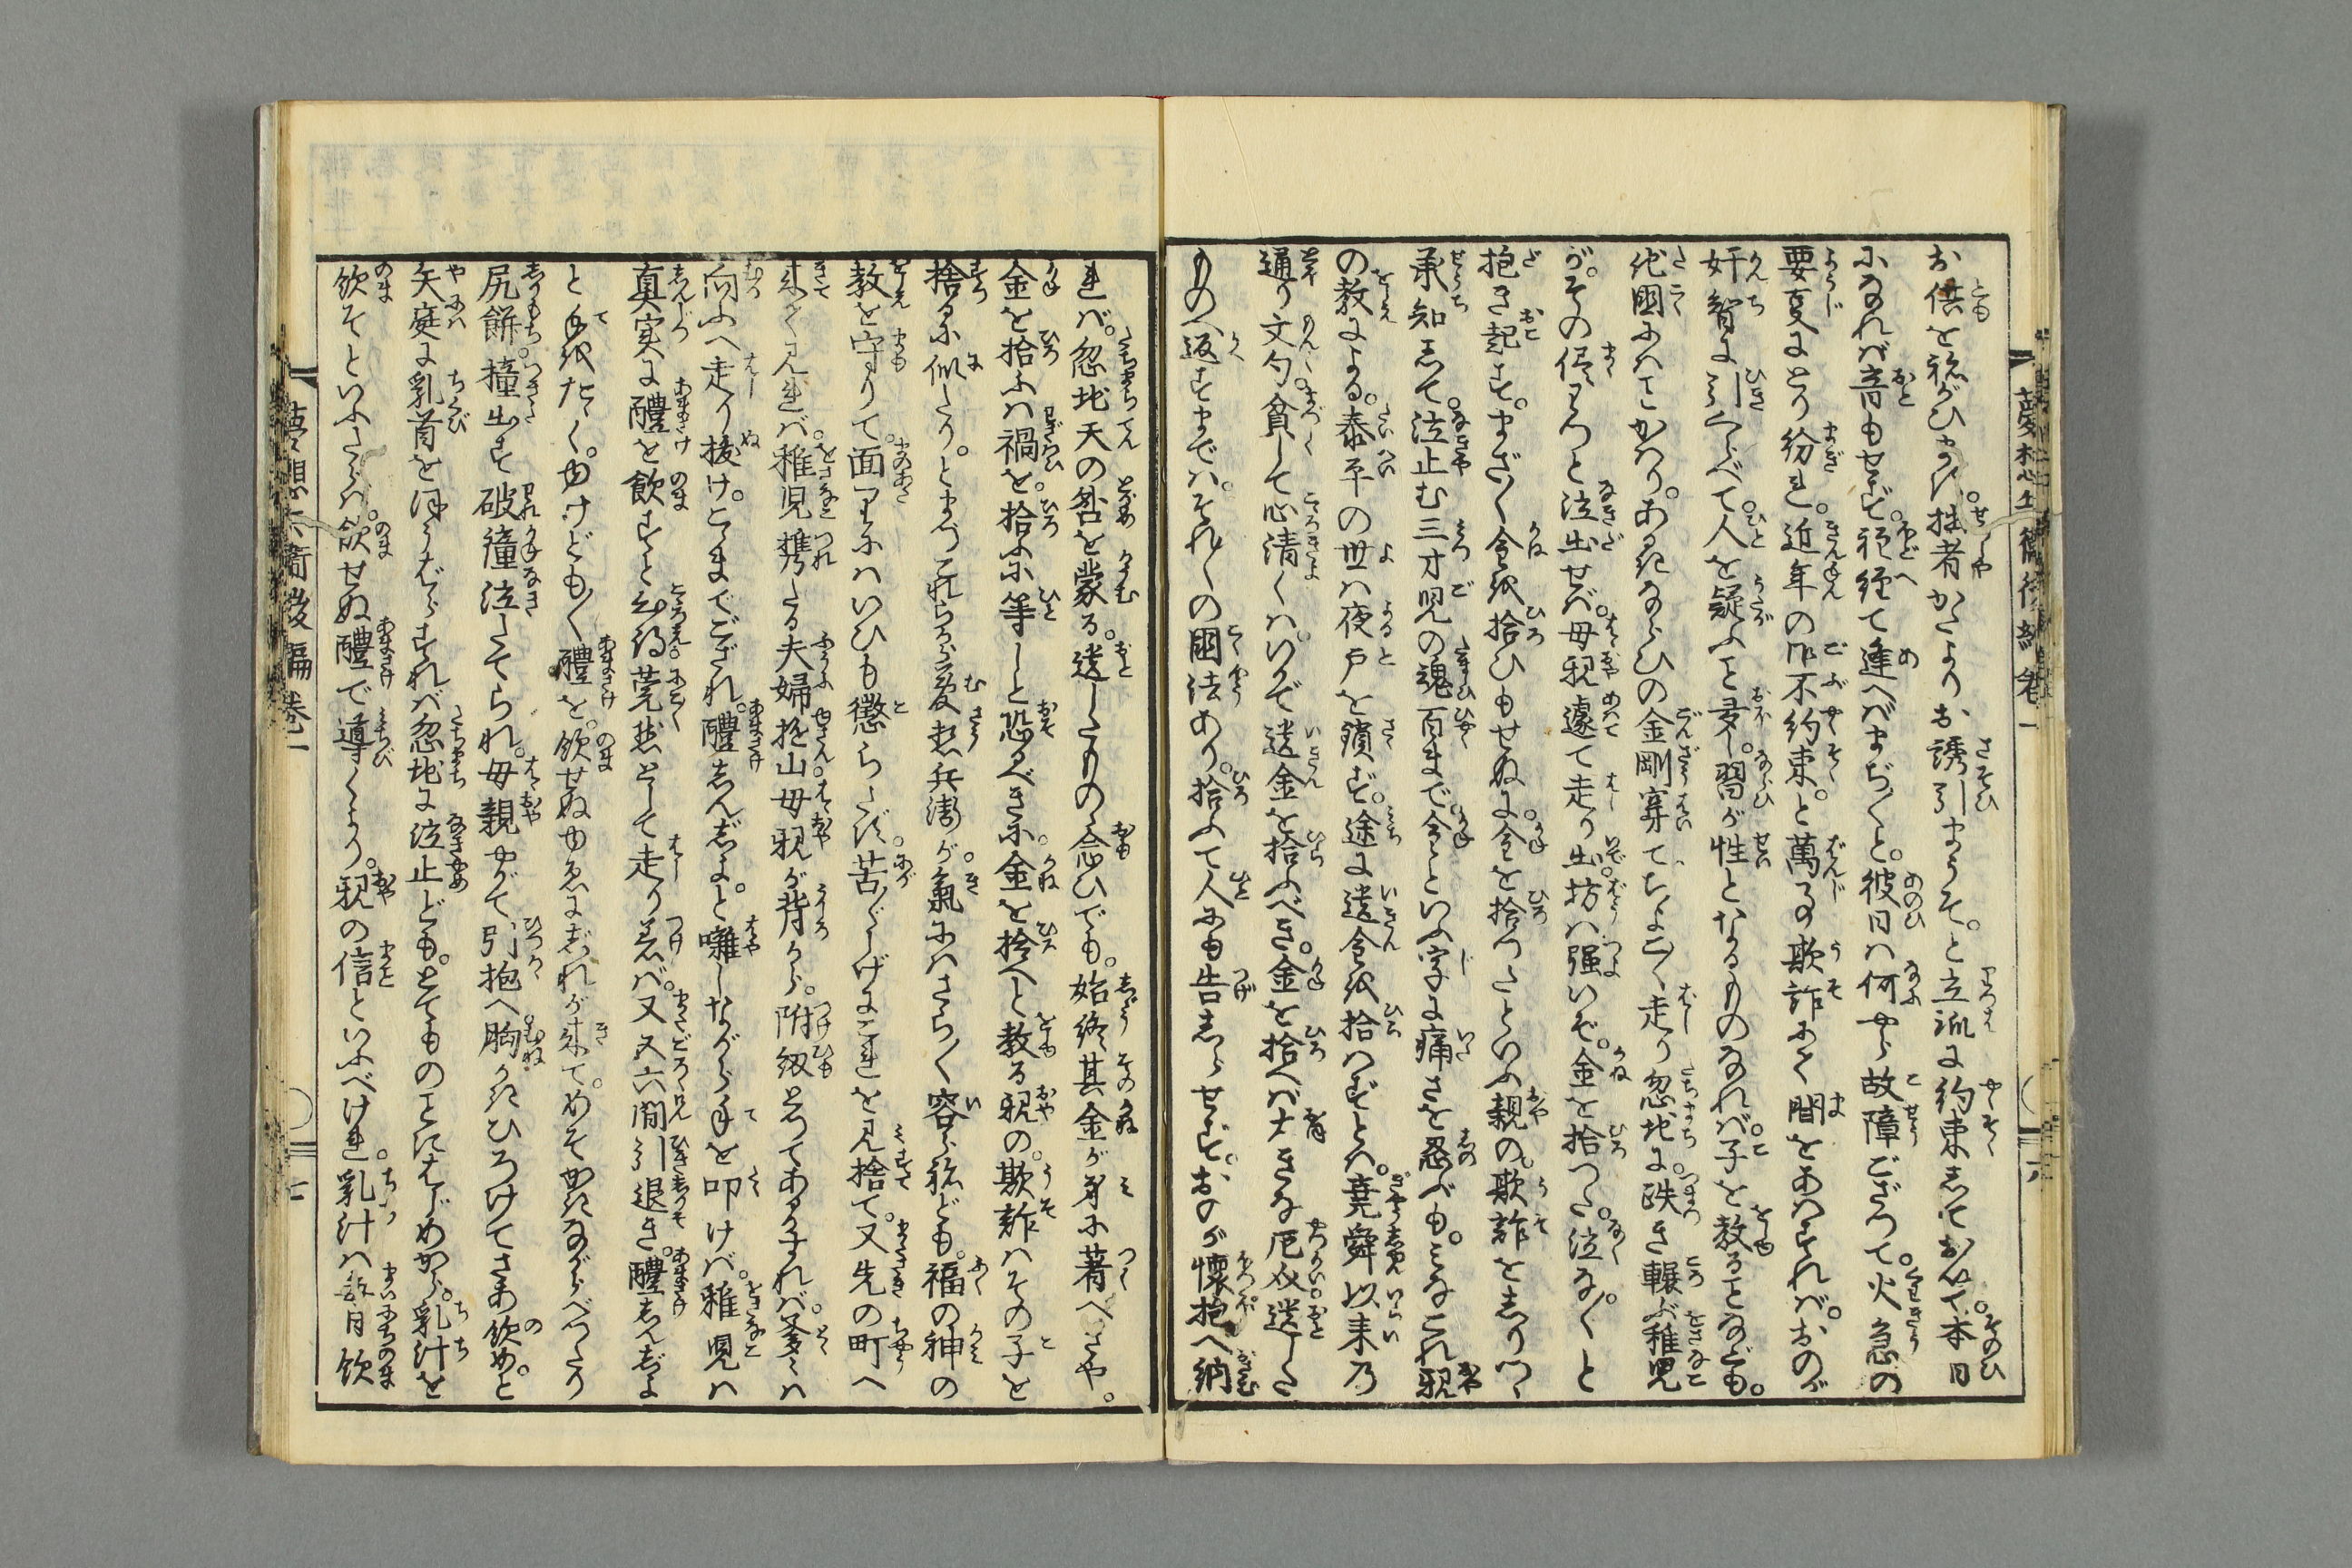 お供を禰がひませう。拙者かたよりお誘引まうそ。と立派に約束しておいて。本日
になれば音もせず。程経て逢へばまぢ〳〵と。彼日は何やら故障ござつて。火急の
要事にとり紛れ。近年の御不約束。と萬事欺詐にて間をあはすれば。おのが
奸智に引くらべて。人を疑ふこと多し。習が性となるものなれば。子を教ることなども。
他国にはことかはり。あるきならひの金剛穿て。ちよこ〳〵走り忽地に。跌き輾ぶ稚児
が。その侭わつと泣出せば。母親遽て走り出。坊は強いぞ。金を拾つた。泣な〳〵と
抱き起す。まだ〳〵金を拾ひもせぬに。金を拾つたといふ親の。欺詐をしりつゝ
承知して。泣止む三才児の魂百まで。金といふ字に痛さを忍べも。みなこれ親
の教による。泰平の世は夜戸を鎖ず。途に遺金を拾はずとは。堯舜以来乃
通り文句。貧して心清くは。いかで遺金を拾ふべき。金を拾へば大きな厄災遺した
ものへ返すまでは。それ〳〵の国法あり。拾ふて人にも告しらせず。おのが懐抱へ納
れば。忽地天の咎を蒙る。遺したものゝ念ひでも。始終其金が身に著べきや。
金を拾ふは禍を。拾ふに等しと恐るべきに。金を拾へと教る親の。欺詐はその子を
捨るに似たり。とまづこれらが夢想兵衛が。氣にはさら〳〵容らねども。福の神の
教を守りて。面にはいひも懲らさず。苦〴〵しげにこれを見捨て。又先の町へ
来て見れば。稚児携たる夫婦遊山。母親が背から。附紐とつてあるかすれば。爹々は
向ふへ走り抜け。こゝまでござれ。醴しんぢよ。と囃しながら手を叩けば。稚児は
真実に醴を飲すと心得莞然として走り着ば。又又六間引退き。醴しんぢよ
と手をたゝく。ゆけども〳〵醴を。飲せぬゆゑにじれが来て。めそかきながらべつたり
尻餅撞出す破鐘泣たてられ。母親やがて引抱へ胸かきひろげてさあ飲め。と
矢庭に乳首をほうばらすれば忽地に泣止ども。とてものことにはじめから。乳汁を
飲そといふたらば。飲せぬ醴で導くより。親の信といふべけれ。乳汁は毎日飲
夢想兵衛後編卷一
六
夢想兵衛後編巻一
七